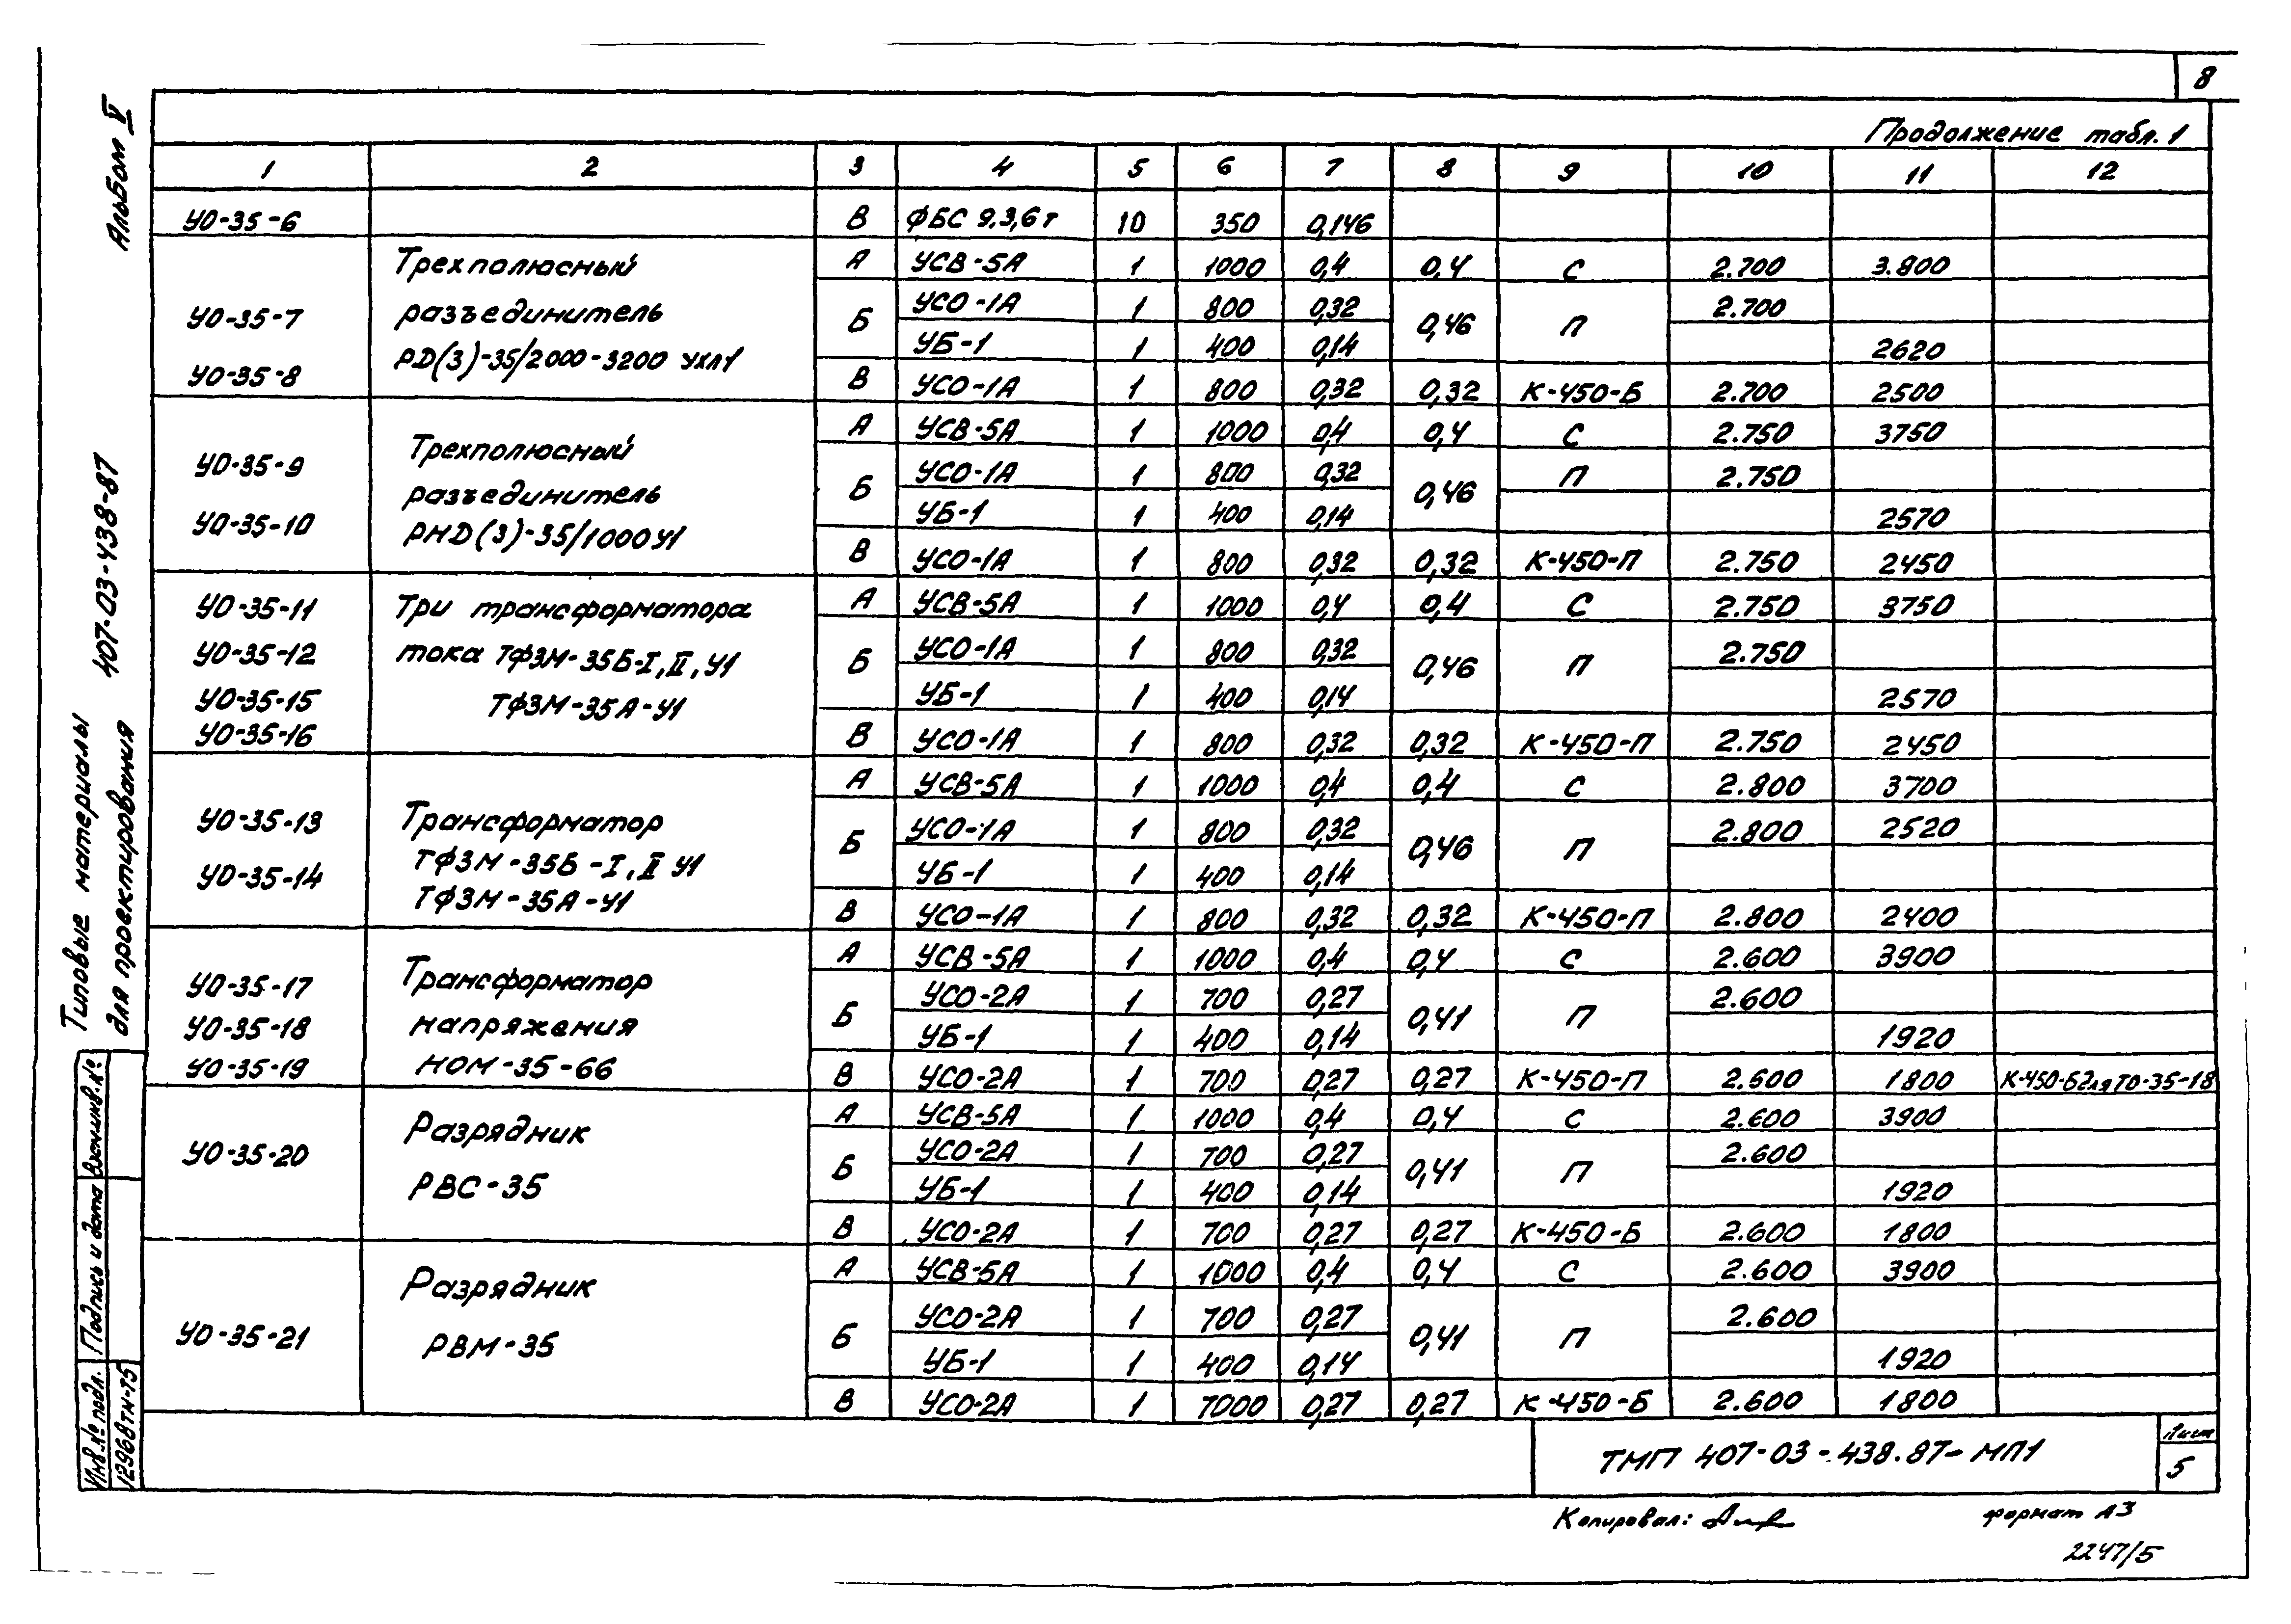 8
Альбом V
Продолжение табл. 1
1 2 3 4 5 6 7 8 9 10 11 12
УО-35-6 В ФБС 9.3,6т 10 350 0,146
УО-35-7
УО-35-8
Трехполюсный
разъединитель
РД(З)-35/2000-3200 УХЛ1
А УСВ-5А 1 1000 0,4 0,4 С 2.700 3.800
Б УСО-1А 1 800 0,32 0,46 П 2.700
УБ-1 1 400 0,14 2620
В УСО-1А 1 800 0,32 0,32 К-450-Б 2.700 2500
УО-35-9
УО-35-10
Трехполюсный
разъединитель
РНД(З)-35/1000У1
А УСВ-5А 1 1000 0,4 0,4 С 2.750 3750
Б УСО-1А 1 800 0,32 0,46 П 2.750
УБ-1 1 400 0,14 2570
В УСО-1А 1 800 0,32 0,32 К-450-П 2.750 2450
УО-35-11
УО-35-12
УО-35-15
УО-35-16
Три трансформатора
тока ТФЗМ-35Б-I, II, У1
ТФЗМ-35А-У1
А УСВ-5А 1 1000 0,4 0,4 С 2.750 3750
Б УСО-1А 1 800 0,32 0,46 П 2.750
УБ-1 1 400 0,14 2570
В УСО-1А 1 800 0,32 0,32 К-450-П 2.750 2450
УО-35-13
УО-35-14
Трансформатор
ТФЗМ-35Б-I, II У1
ТФЗМ-35А-У1
А УСВ-5А 1 1000 0,4 0,4 С 2.800 3700
Б УСО-1А 1 800 0,32 0,46 П 2.800 2520
УБ-1 1 400 0,14
В УСО-1А 1 800 0,32 0,32 К-450-П 2.800 2400
УО-35-17
УО-35-18
УО-35-19
Трансформатор
напряжения
НОМ-35-66
А УСВ-5А 1 1000 0,4 0,4 С 2.600 3900
Б УСО-2А 1 700 0,27 0,41 П 2.600
УБ-1 1 400 0,14 1920
В УСО-2А 1 700 0,27 0,27 К-450-П 2.600 1800 К-450-Б для ТО-35-18
УО-35-20
Разрядник
РВС-35
А УСВ-5А 1 1000 0,4 0,4 С 2.600 3900
Б УСО-2А 1 700 0,27 0,41 П 2.600
УБ-1 1 400 0,14 1920
В УСО-2А 1 700 0,27 0,27 К-450-Б 2.600 1800
УО-35-21
Разрядник
РВМ-35
А УСВ-5А 1 1000 0,4 0,4 С 2.600 3900
Б УСО-2А 1 700 0,27 0,41 П 2.600
УБ-1 1 400 0,14 1920
В УСО-2А 1 7000 0,27 0,27 К-450-Б 2.600 1800
Типовые материалы
для проектирования 407-03-438-87
Взам.инв.№
Подпись и дата
Инв.№ подл.
12968тм-т5
ТМП 407-03-438.87-МП1
Лист
5
Копировал:
формат А3
2247/5